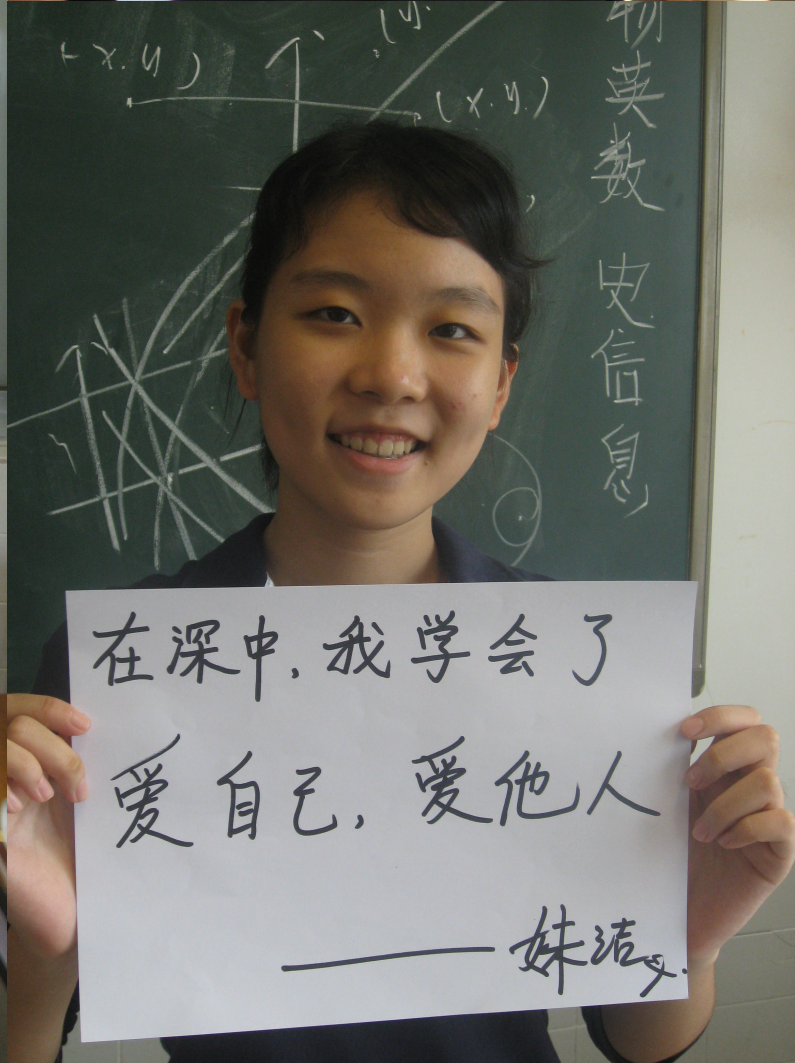 (x.y)
(x.y.)
物英数 史信息
在深中，我学会了
爱自己，爱他人
——妹洁